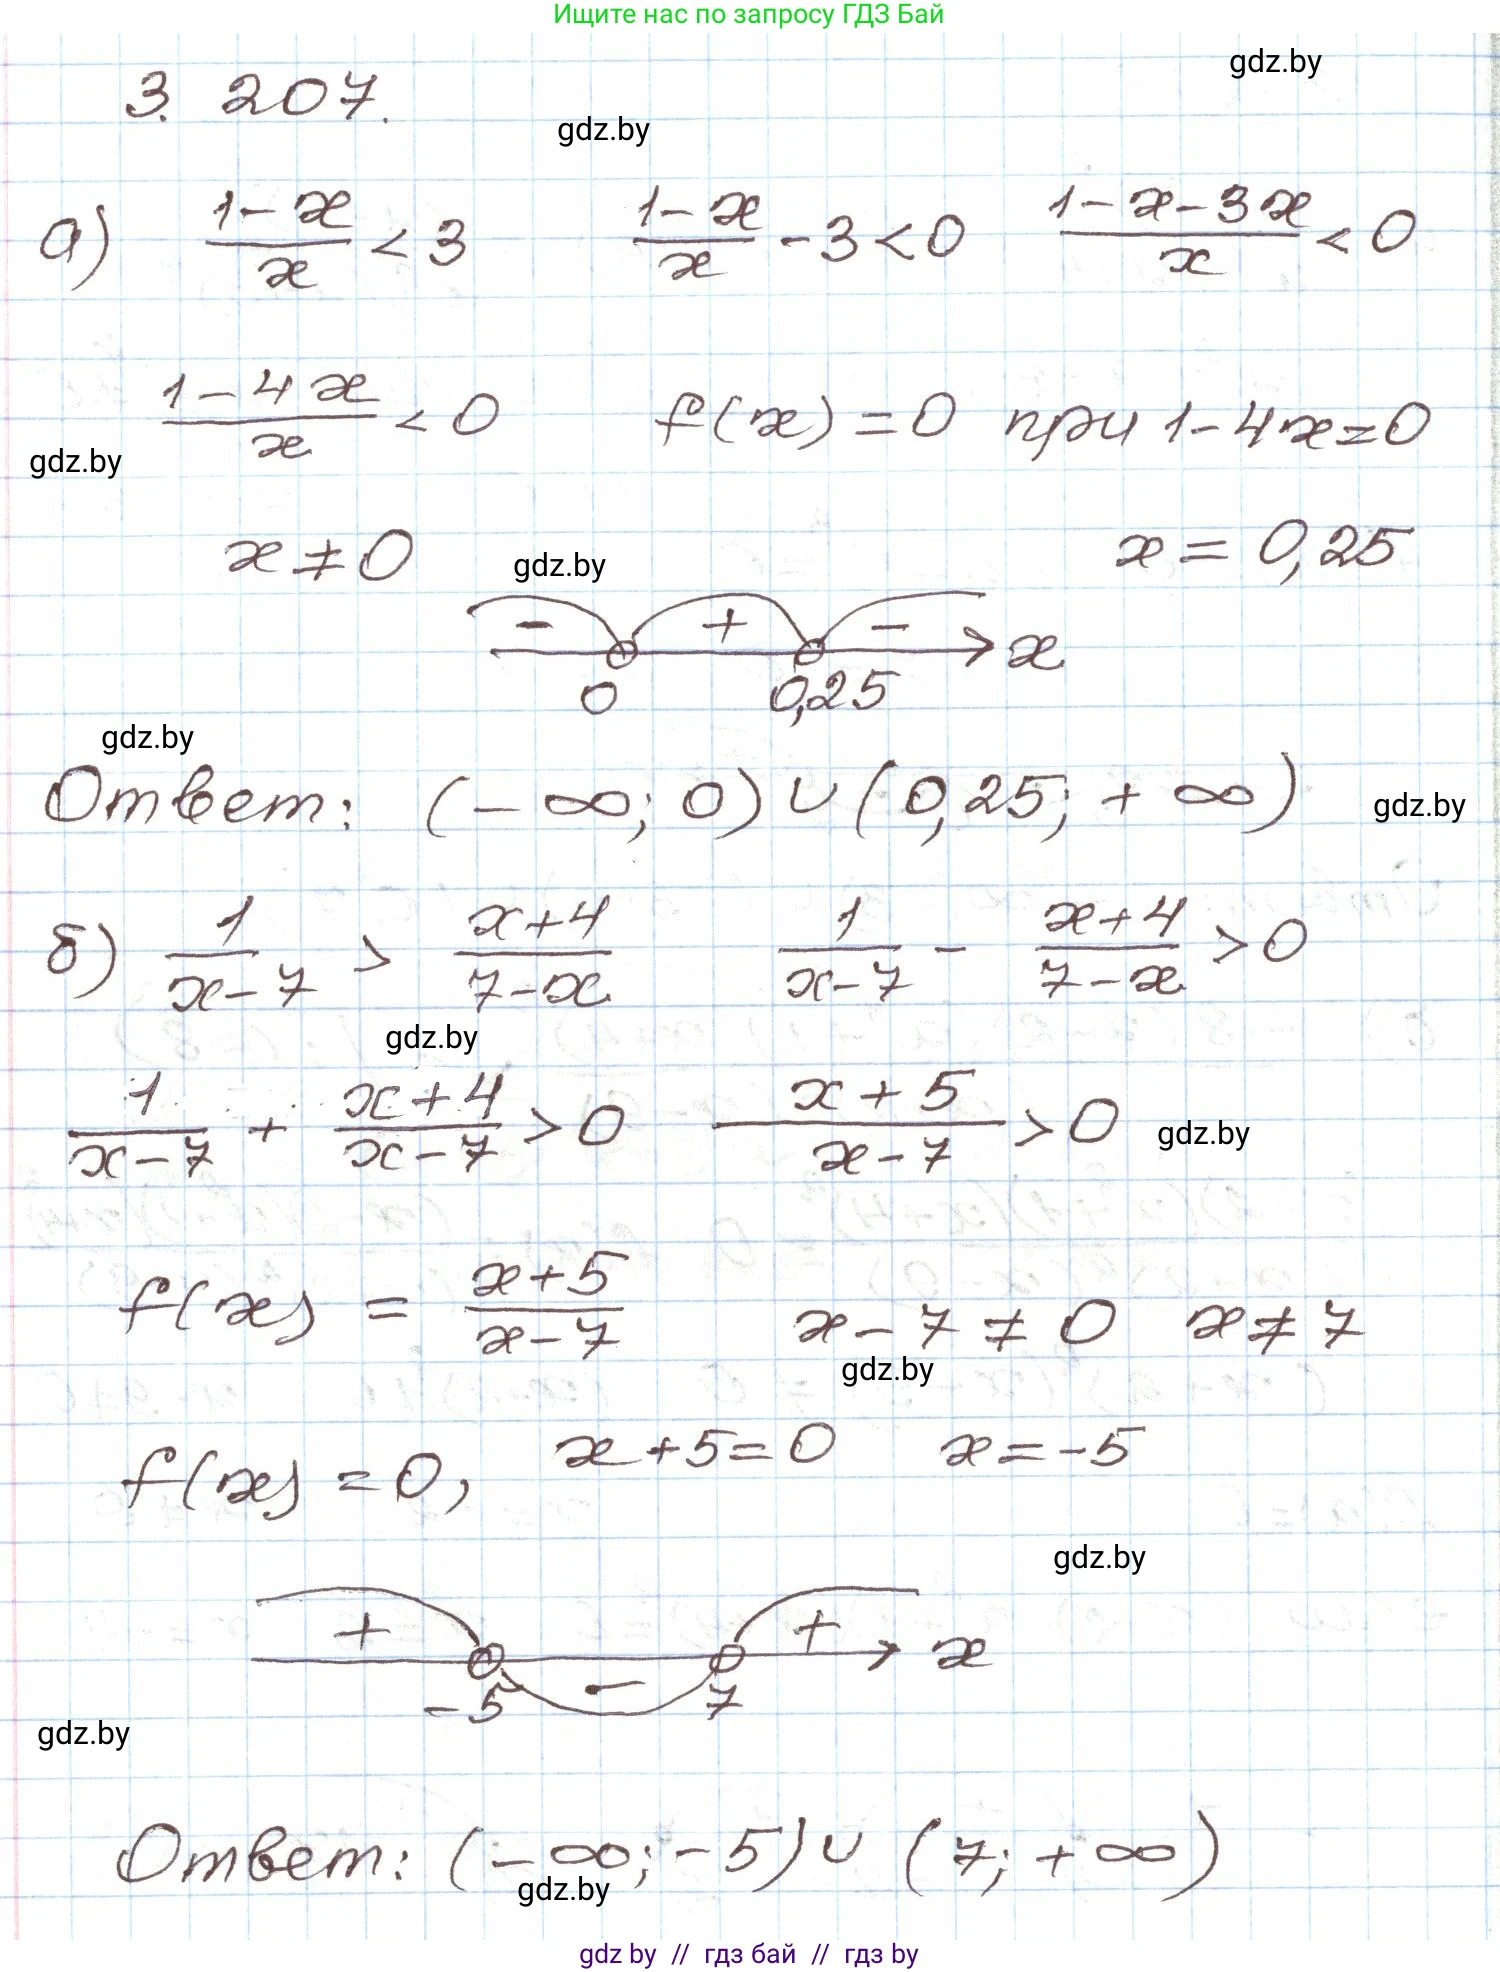 Ищите нас по запросу ГДЗ Бай
gdz.by
3. 207.
gdz.by
а) (1-x)/x < 3 (1-x)/x - 3 < 0 (1-x-3x)/x < 0
(1-4x)/x < 0 f(x) = 0 при 1-4x=0
gdz.by
x ≠ 0 gdz.by x = 0,25
- + - x
0 0,25
gdz.by
Ответ: (-∞; 0) ∪ (0,25; +∞)
gdz.by
б) 1/(x-7) > (x+4)/(7-x) 1/(x-7) - (x+4)/(7-x) > 0
gdz.by
1/(x-7) + (x+4)/(x-7) > 0 (x+5)/(x-7) > 0
gdz.by
f(x) = (x+5)/(x-7) x-7 ≠ 0 x ≠ 7
gdz.by
f(x) = 0, x+5=0 x=-5
gdz.by
+ - + x
-5 7
gdz.by
Ответ: (-∞; -5) ∪ (7; +∞)
gdz.by
gdz by // гдз бай // гдз by